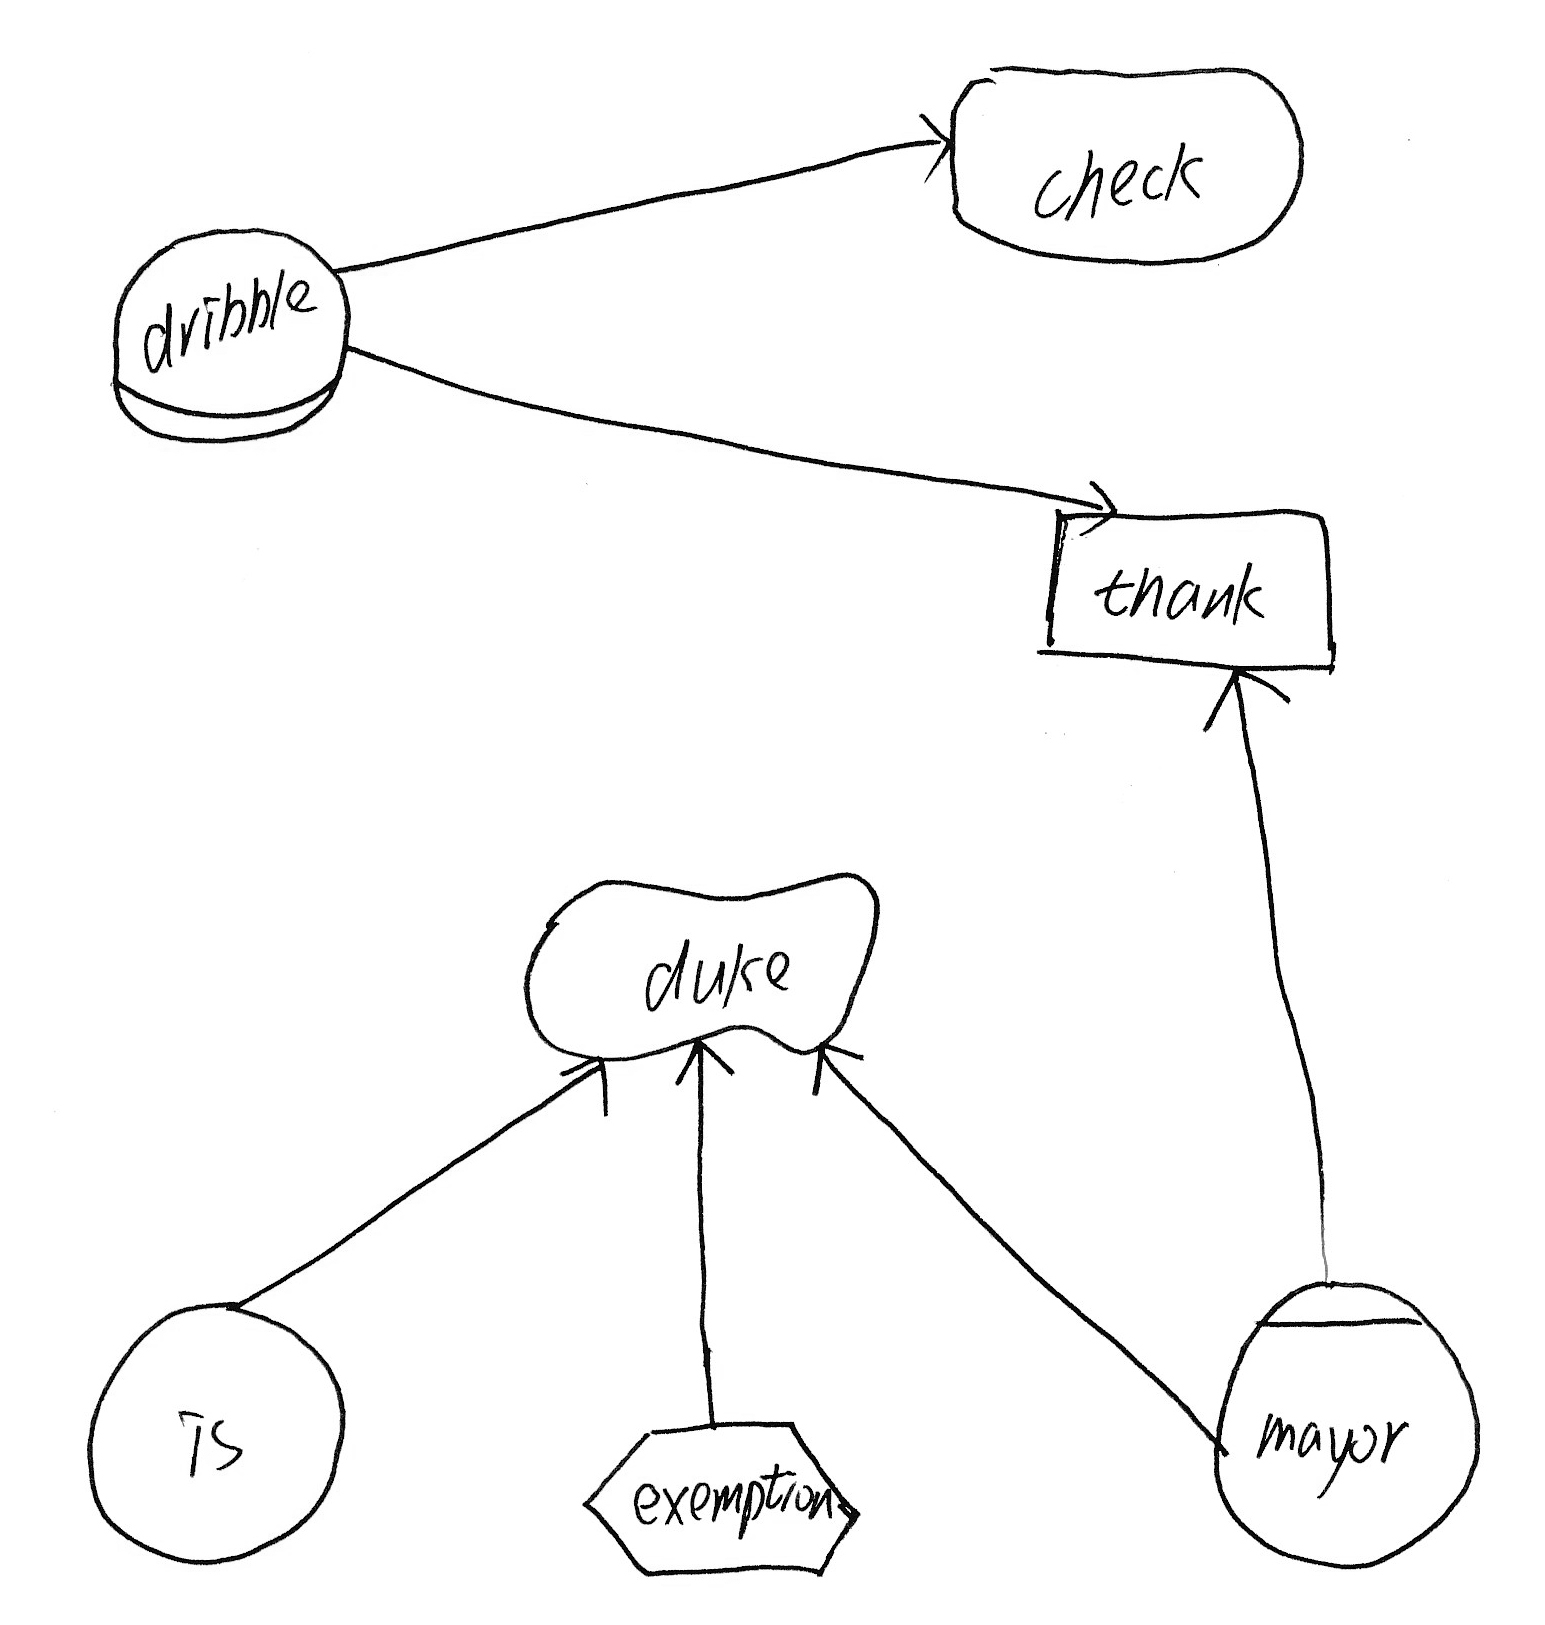 check
dribble
thank
duke
is
exemption
mayor